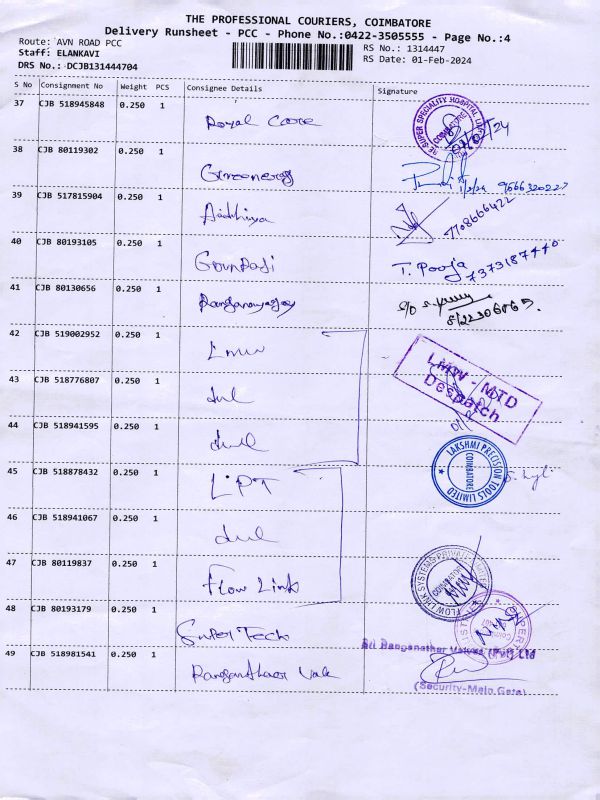 THE PROFESSIONAL COURIERS, COIMBATORE
Delivery Runsheet - PCC - Phone No.:0422-3505555 - Page No.:4
Route: AVN ROAD PCC RS No.: 1314447
Staff: ELANKAVI RS Date: 01-Feb-2024
DRS No.: DCJB131444704
S No Consignment No Weight PCS Consignee Details Signature
37 CJB 518945848 0.250 1 Royal Care
SUPER SPECIALITY HOSPITAL COIMBATORE
38 CJB 80119302 0.250 1 Greenergy 9566320227
39 CJB 517815904 0.250 1 7708666422
40 CJB 80193105 0.250 1 T. Pooja 7373187440
41 CJB 80130656 0.250 1
42 CJB 519002952 0.250 1 Lmw
LMW - MTD
Despatch
43 CJB 518776807 0.250 1
44 CJB 518941595 0.250 1
LAKSHMI PRECISION TOOLS LIMITED COIMBATORE
45 CJB 518878432 0.250 1 LiPT
46 CJB 518941067 0.250 1
47 CJB 80119837 0.250 1 Flow Link
FLOW LINK SYSTEMS PRIVATE LIMITED
48 CJB 80193179 0.250 1 Super Tech
Sri Ranganathar Valves (Pvt) Ltd
49 CJB 518981541 0.250 1 Ranganathaar Vale
(Security-Main Gate)